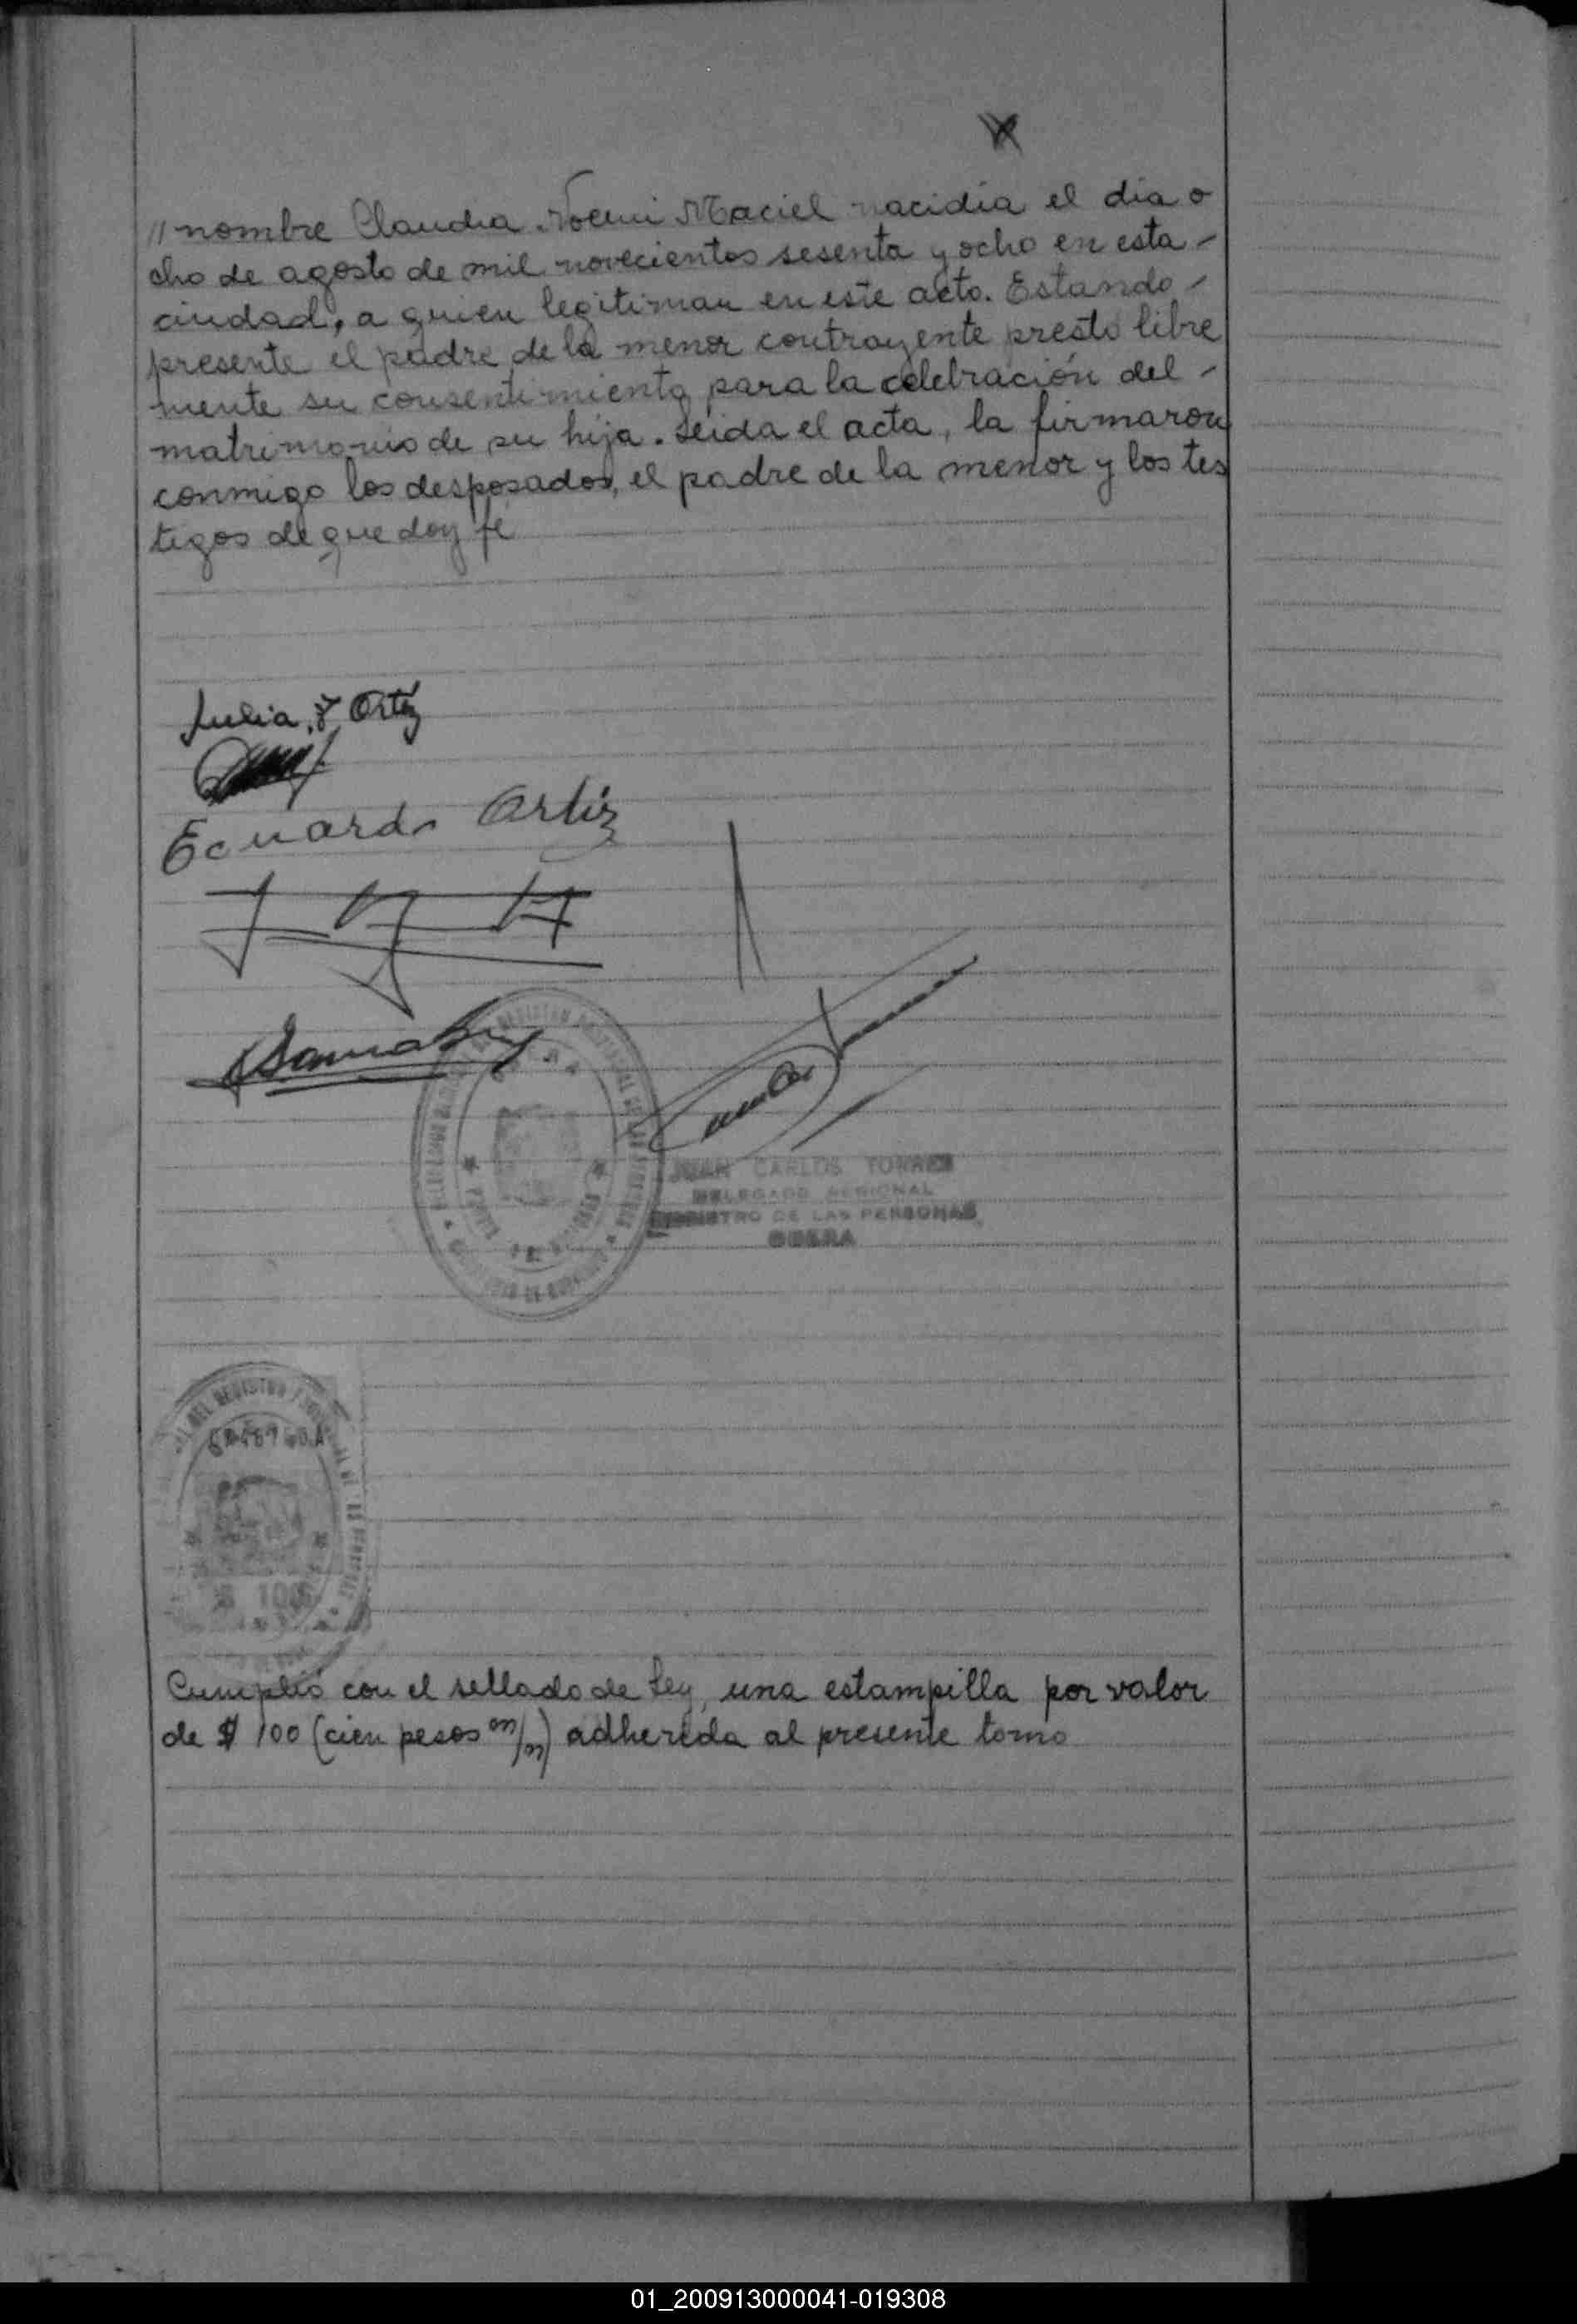 // nombre Claudia Noemi Maciel nacidia el dia o
cho de agosto de mil novecientos sesenta y ocho en esta -
ciudad, a quien legitiman en este acto. Estando -
presente el padre de la menor contrayente presto libre
mente su consentimiento para la celebración del -
matrimonio de su hija. Leida el acta, la firmaron
conmigo los desposados, el padre de la menor y los tes
tigos de que doy fé
Julia F. Ortiz
Ecuardo Ortiz
JUAN CARLOS TORRES
DELEGADO REGIONAL
REGISTRO DE LAS PERSONAS
OBERA
$ 100
Cumplió con el sellado de Ley, una estampilla por valor
de $ 100 (cien pesos m/n) adherida al presente tomo
01_200913000041-019308